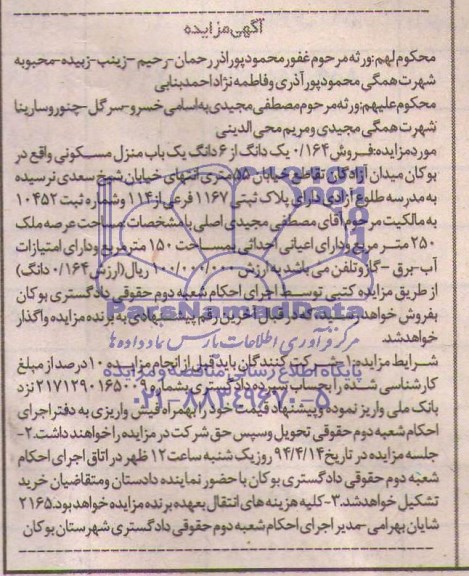 آگهی مزایده
محکوم لهم:ورثه مرحوم غفور محمودپور اذر رحمان-رحیم -زینب-زبیده-محبوبه
شهرت همگی محمودپور آذری و فاطمه نژاد احمد بنابی
محکوم علیهم:ورثه مرحوم مصطفی مجیدی به اسامی خسرو-سرگل -چنور و سارینا
شهرت همگی مجیدی و مریم محی الدینی
مورد مزایده:فروش ۰/۱۶۴ یک دانگ از ۶ دانگ یک باب منزل مسکونی واقع در
بوکان میدان آزادگان تقاطع خیابان ۵۵ متری انتهای خیابان شیخ سعدی نرسیده
به مدرسه طلوع آزادی دارای پلاک ثبتی ۱۱۶۷ فرعی از ۱۱۴ و شماره ثبت ۱۰۴۵۲
به مالکیت مرحوم آقای مصطفی مجیدی اصلی با مشخصات مساحت عرصه ملک
۲۵۰ متر مربع و دارای اعیانی احداثی بمساحت ۱۵۰ مترمربع و دارای امتیازات
آب-برق -گاز و تلفن می باشد به ارزش ۱۰۰/۰۰۰/۰۰۰ ریال(ارزش ۰/۱۶۴ دانگ)
از طریق مزایده کتبی توسط اجرای احکام شعبه دوم حقوقی دادگستری بوکان
بفروش خواهد رسید که در قبال آخرین رقم پیشنهادی به برنده مزایده واگذار
خواهد شد.
شرایط مزایده:۱-شرکت کنندگان باید قبل از انجام مزایده ۱۰ درصد از مبلغ
کارشناسی شده را بحساب سپرده دادگستری بشماره ۲۱۷۱۲۹۰۱۶۵۰۰۹ نزد
بانک ملی واریز نموده و پیشنهاد قیمت خود را بهمراه فیش واریزی به دفتر اجرای
احکام شعبه دوم حقوقی تحویل و سپس حق شرکت در مزایده را خواهند داشت.۲-
جلسه مزایده در تاریخ ۹۴/۴/۱۴ روز یک شنبه ساعت ۱۲ ظهر در اتاق اجرای احکام
شعبه دوم حقوقی دادگستری بوکان با حضور نماینده دادستان و متقاضیان خرید
تشکیل خواهد شد.۳-کلیه هزینه های انتقال بعهده برنده مزایده خواهد بود.۲۱۶۵
شایان بهرامی-مدیر اجرای احکام شعبه دوم حقوقی دادگستری شهرستان بوکان
ParsNamadData
مرکز فرآوری اطلاعات پارس نماد داده ها
پایگاه اطلاع رسانی مناقصه و مزایده
۰۲۱-۸۸۳۴۹۶۷۰-۵